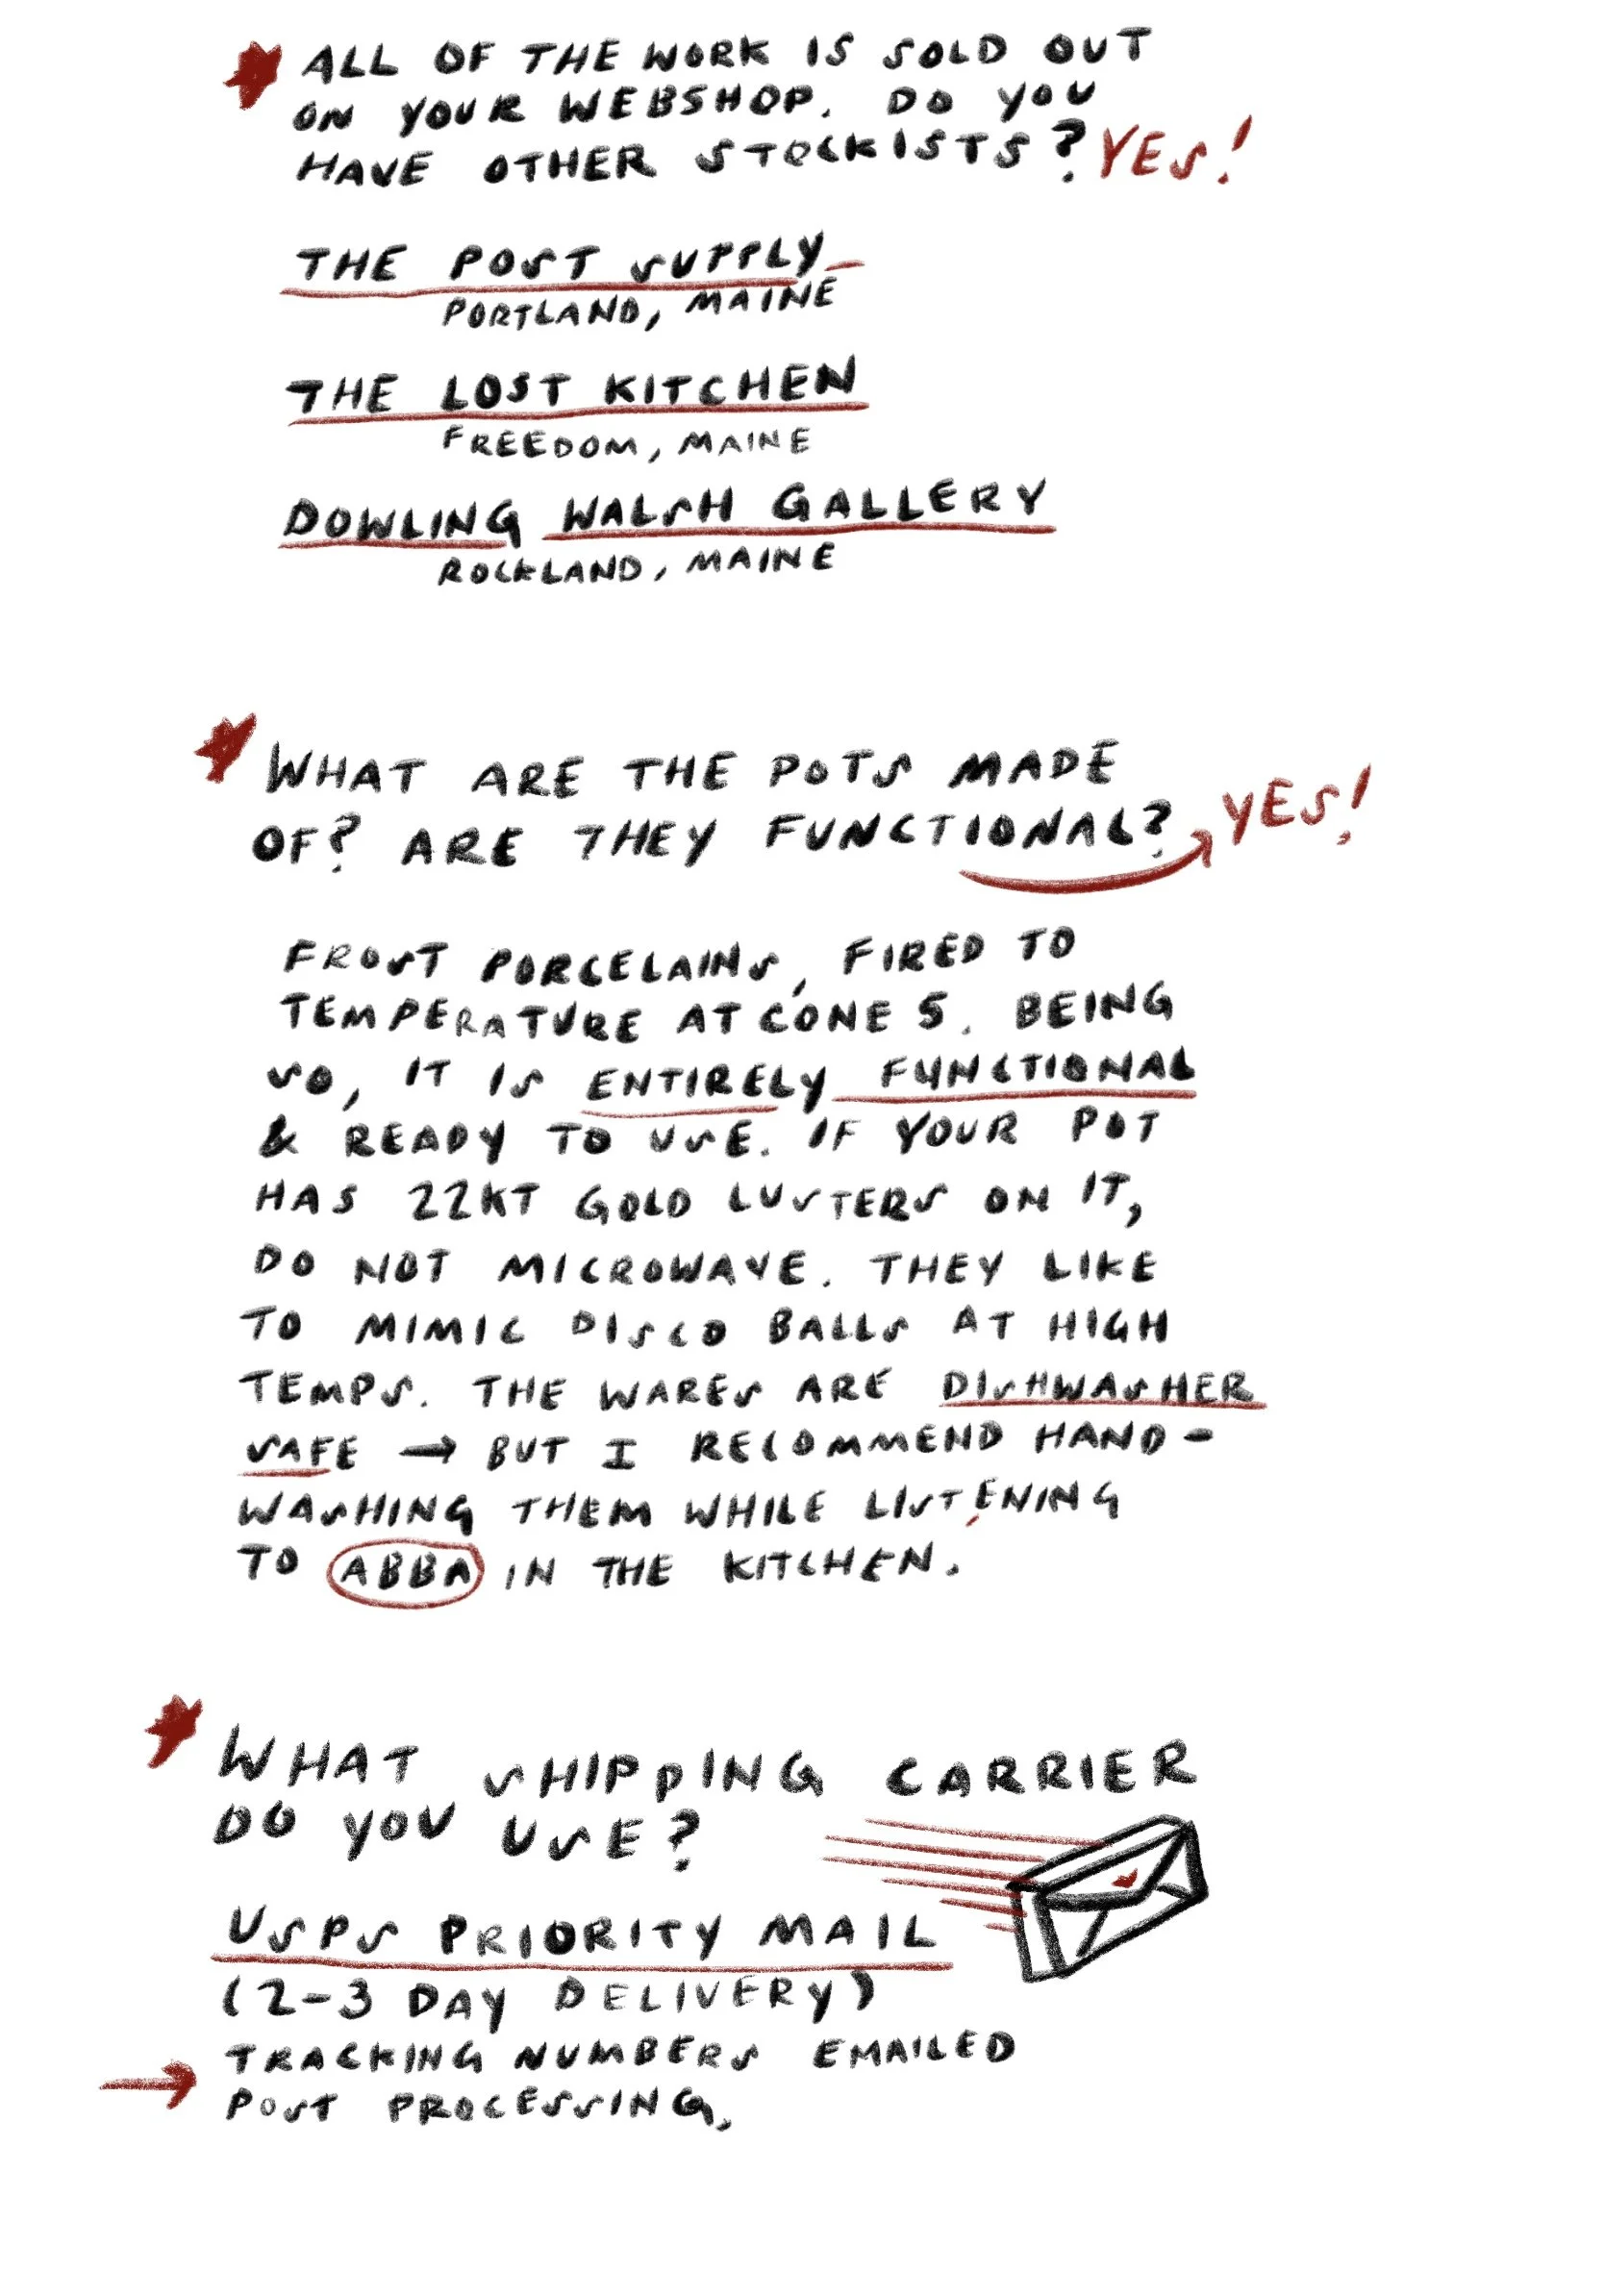 ALL OF THE WORK IS SOLD OUT
ON YOUR WEBSHOP. DO YOU
HAVE OTHER STOCKISTS? YES!
THE POST SUPPLY
PORTLAND, MAINE
THE LOST KITCHEN
FREEDOM, MAINE
DOWLING WALSH GALLERY
ROCKLAND, MAINE
WHAT ARE THE POTS MADE
OF? ARE THEY FUNCTIONAL? YES!
FROST PORCELAINS, FIRED TO
TEMPERATURE AT CONE 5. BEING
SO, IT IS ENTIRELY FUNCTIONAL
& READY TO USE. IF YOUR POT
HAS 22KT GOLD LUSTERS ON IT,
DO NOT MICROWAVE. THEY LIKE
TO MIMIC DISCO BALLS AT HIGH
TEMPS. THE WARES ARE DISHWASHER
SAFE → BUT I RECOMMEND HAND-
WASHING THEM WHILE LISTENING
TO ABBA IN THE KITCHEN.
WHAT SHIPPING CARRIER
DO YOU USE?
USPS PRIORITY MAIL
(2-3 DAY DELIVERY)
TRACKING NUMBERS EMAILED
→ POST PROCESSING.